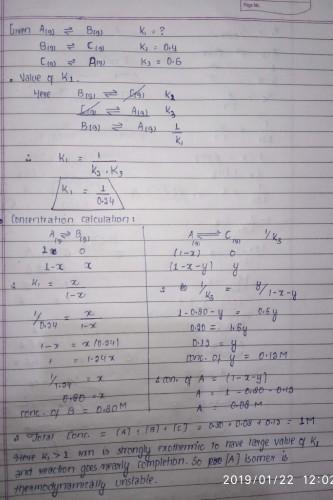 Page No.
Given A(g) ⇌ B(g) K₁ = ?
B(g) ⇌ C(g) K₂ = 0.4
C(g) ⇌ A(g) K₃ = 0.6
• Value of K1
Here B(g) ⇌ C(g) K2
C(g) ⇌ A(g) K3
B(g) ⇌ A(g) 1/K1
∴ K1 = 1/K2.K3
K1 = 1/0.24
Concentration calculation:
A(g) ⇌ B(g)
1 0
1-x x
∴ K1 = x/1-x
1/0.24 = x/1-x
1-x = x(0.24)
1 = 1.24x
1/1.24 = x
0.80 = x
conc. of B = 0.80M
A(g) ⇌ C(g) 1/K3
(1-x) 0
(1-x-y) y
∴ 1/K3 = y/1-x-y
1-0.80-y = 0.6y
0.20 = 1.6y
0.12 = y
conc. of y = 0.12M
∴ conc. of A = (1-x-y)
A = 1-0.80-0.12
A = 0.08M
∴ Total conc. = [A]+[B]+[C] = 0.80+0.08+0.12 = 1M
Here K1 > 1 is strongly exothermic to have large value of K1
and reaction goes nearly completion. So [A] Isomer is
thermodynamically unstable.
2019/01/22 12:02